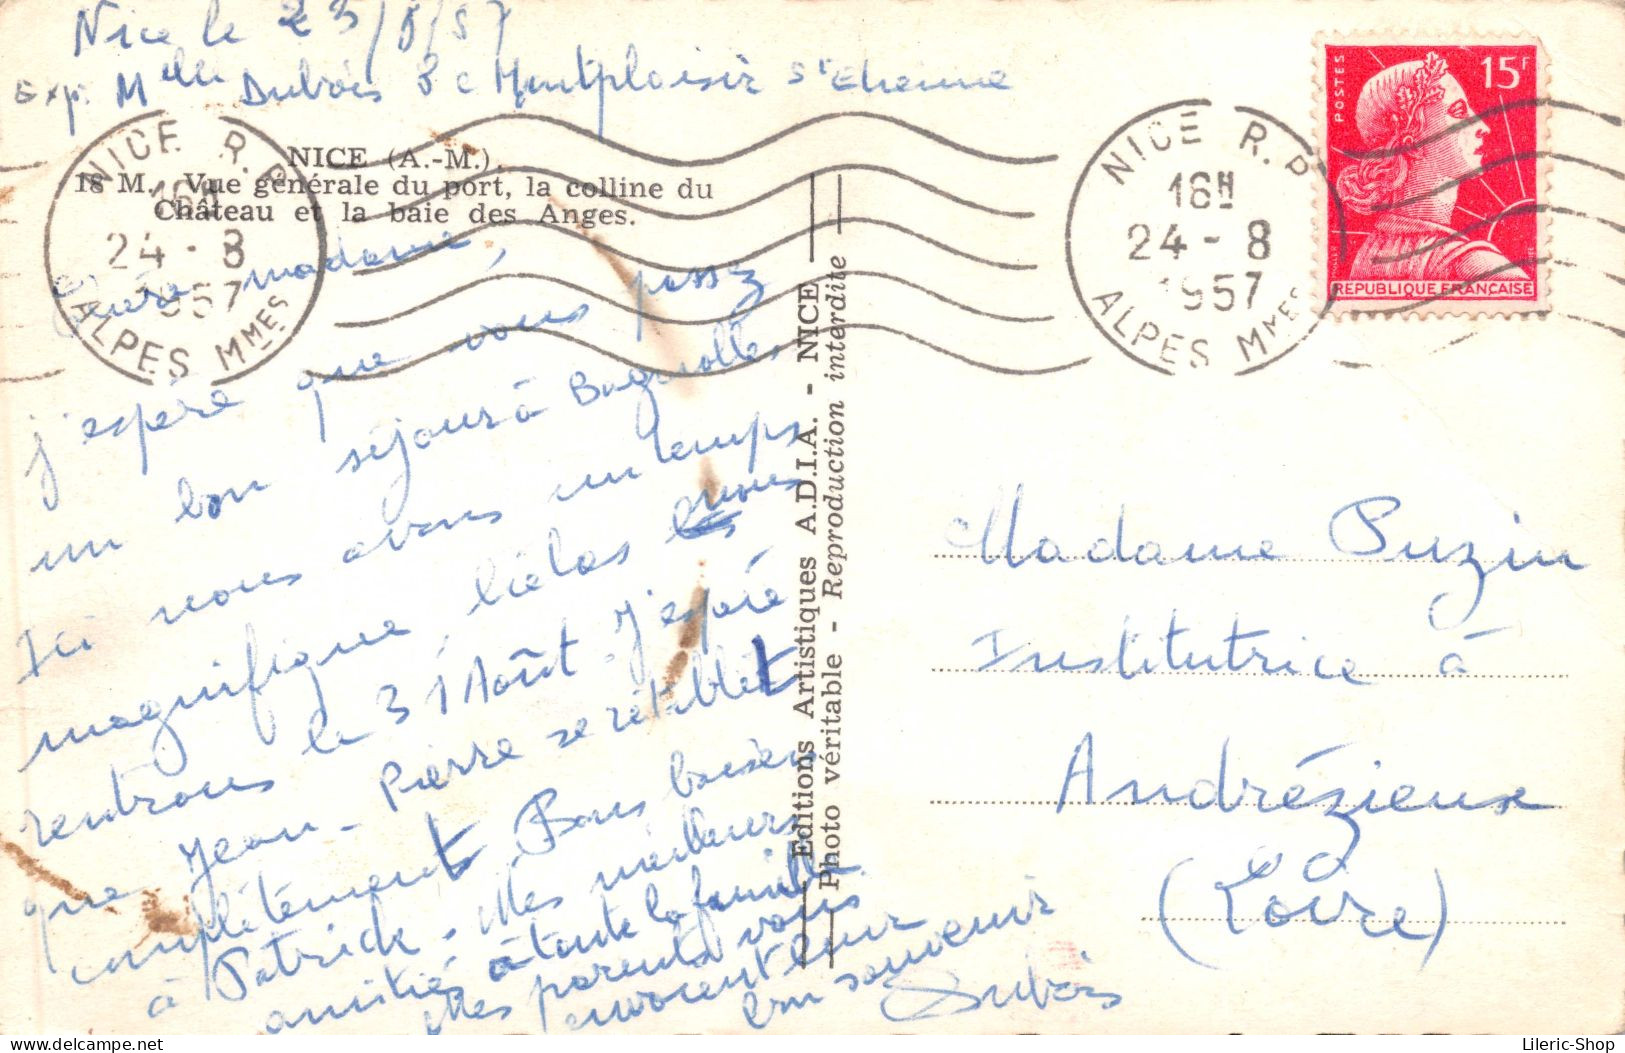 Nice le 23/8/57
Exp. Mlle Dubois 3 c Montplaisir St Etienne
NICE (A.-M.)
18 M. - Vue générale du port, la colline du
Château et la baie des Anges.
NICE R.P
16H
24 - 8
1957
ALPES MMES
NICE R.P
16H
24 - 8
1957
ALPES MMES
POSTES
15F
REPUBLIQUE FRANÇAISE
Chère madame,
j'espère que vous passez
un bon séjour à Bagnolles.
Ici nous avons un temps
magnifique, hélas nous
rentrons le 31 Août. J'espère
que Jean-Pierre se rétablit
complètement. Bons baisers
à Patrick. Mes meilleurs
amitiés à toute la famille
Mes parents vous
envoient leur
bon souvenir
Dubois
Editions Artistiques A.D.I.A. - NICE
Photo véritable - Reproduction interdite
Madame Puzin
Institutrice à
Andrézieux
(Loire)
Lileric-Shop